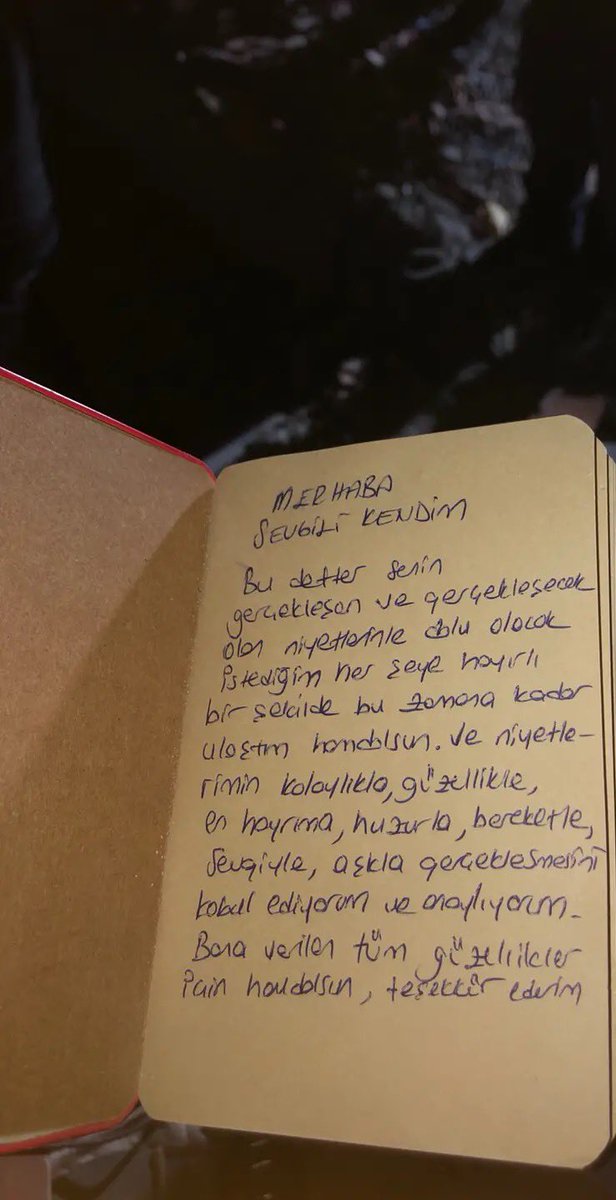 MERHABA
SEVGİLİ KENDİM
Bu defter senin
gerçekleşen ve gerçekleşecek
olan niyetlerinle dolu olacak
İstediğim her şeye hayırlı
bir şekilde bu zamana kadar
ulaştım hamdolsun. Ve niyetle-
rimin kolaylıkla, güzellikle,
en hayrıma, huzurla, bereketle,
sevgiyle, aşkla gerçekleşmesini
kabul ediyorum ve onaylıyorum.
Bana verilen tüm güzellikler
için hamdolsun, teşekkür ederim